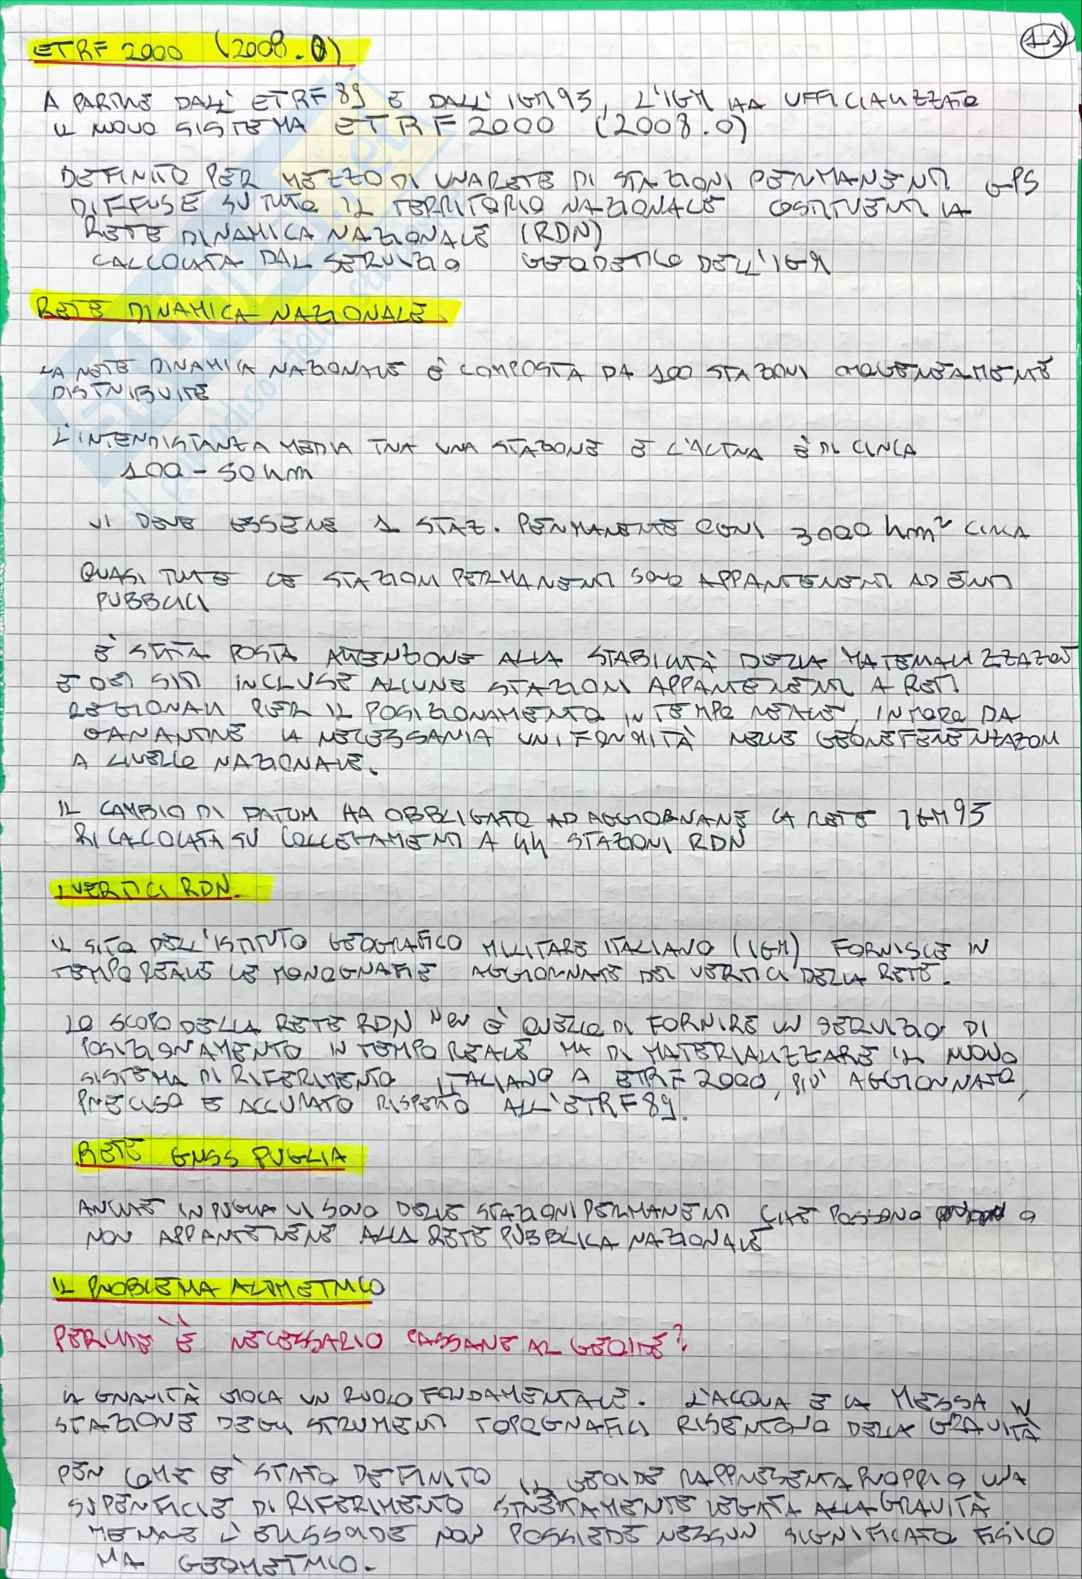 11
ETRF 2000 (2008.0)
A PARTIRE DALL'ETRF89 E DALL'IGM95, L'IGM HA UFFICIALIZZATO
IL NUOVO SISTEMA ETRF2000 (2008.0)
DEFINITO PER MEZZO DI UNA RETE DI STAZIONI PERMANENTI GPS
DIFFUSE SU TUTTO IL TERRITORIO NAZIONALE COSTITUENTI LA
RETE DINAMICA NAZIONALE (RDN)
CALCOLATA DAL SERVIZIO GEODETICO DELL'IGM
RETE DINAMICA NAZIONALE
LA RETE DINAMICA NAZIONALE È COMPOSTA DA 100 STAZIONI OMOGENEAMENTE
DISTRIBUITE
L'INTERDISTANZA MEDIA TRA UNA STAZIONE E L'ALTRA È DI CIRCA
100-50 km
VI DEVE ESSERE 1 STAZ. PERMANENTE OGNI 3000 km² CIRCA
QUASI TUTTE LE STAZIONI PERMANENTI SONO APPARTENENTI AD ENTI
PUBBLICI
È STATA POSTA ATTENZIONE ALLA STABILITÀ DELLA MATERIALIZZAZIONE
E DEI SITI INCLUSE ALCUNE STAZIONI APPARTENENTI A RETI
REGIONALI PER IL POSIZIONAMENTO IN TEMPO REALE, IN MODO DA
GARANTIRE LA NECESSARIA UNIFORMITÀ NELLE GEOREFERENZIAZIONI
A LIVELLO NAZIONALE.
IL CAMBIO DI DATUM HA OBBLIGATO AD AGGIORNARE LA RETE IGM95
RICALCOLATA SU COLLEGAMENTI A 44 STAZIONI RDN
I VERTICI RDN.
IL SITO DELL'ISTITUTO GEOGRAFICO MILITARE ITALIANO (IGM) FORNISCE IN
TEMPO REALE LE MONOGRAFIE AGGIORNATE DEI VERTICI DELLA RETE.
LO SCOPO DELLA RETE RDN NON È QUELLO DI FORNIRE UN SERVIZIO DI
POSIZIONAMENTO IN TEMPO REALE MA DI MATERIALIZZARE IL NUOVO
SISTEMA DI RIFERIMENTO ITALIANO A ETRF2000, PIÙ AGGIORNATO,
PRECISO E ACCURATO RISPETTO ALL'ETRF89.
RETE GNSS PUGLIA
ANCHE IN PUGLIA VI SONO DELLE STAZIONI PERMANENTI CHE POSSONO O
NON APPARTENERE ALLA RETE PUBBLICA NAZIONALE
IL PROBLEMA ALTIMETRICO
PERCHÈ È NECESSARIO PASSARE AL GEOIDE?
LA GRAVITÀ GIOCA UN RUOLO FONDAMENTALE. L'ACQUA E LA MESSA IN
STAZIONE DEGLI STRUMENTI TOPOGRAFICI RISENTONO DELLA GRAVITÀ
PER COME È STATO DEFINITO IL GEOIDE RAPPRESENTA PROPRIO UNA
SUPERFICIE DI RIFERIMENTO STRETTAMENTE LEGATA ALLA GRAVITÀ
MENTRE L'ELISSOIDE NON POSSIEDE NESSUN SIGNIFICATO FISICO
MA GEOMETRICO.